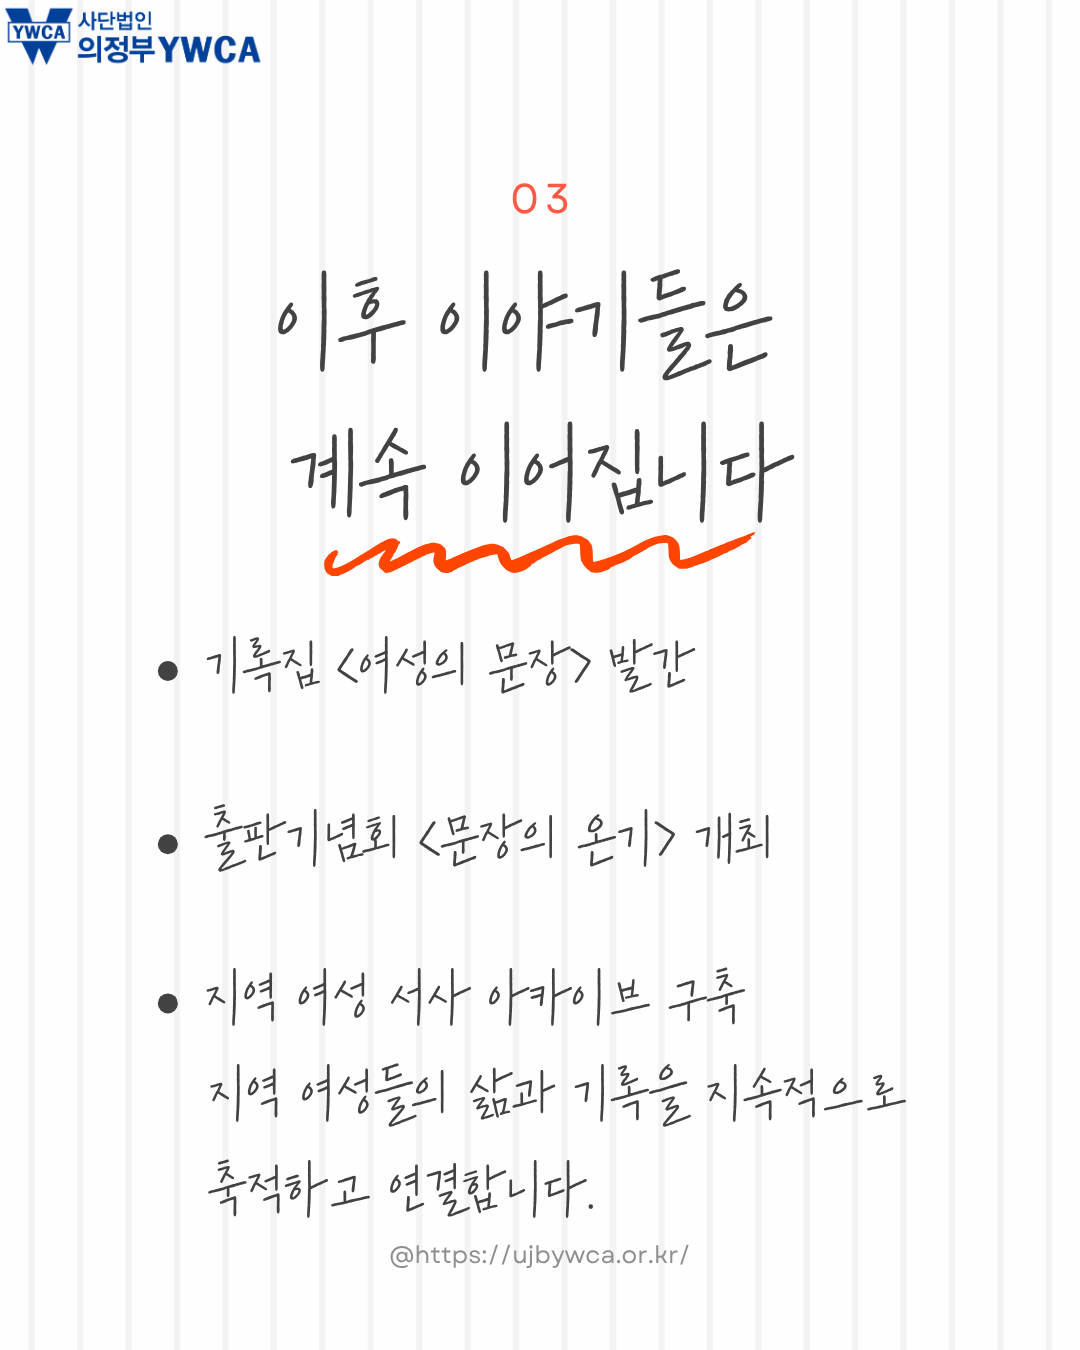 YWCA
사단법인
의정부YWCA
03
이후 이야기들은
계속 이어집니다
● 기록집 <여성의 문장> 발간
● 출판기념회 <문장의 온기> 개최
● 지역 여성 서사 아카이브 구축
지역 여성들의 삶과 기록을 지속적으로
축적하고 연결합니다.
@https://ujbywca.or.kr/